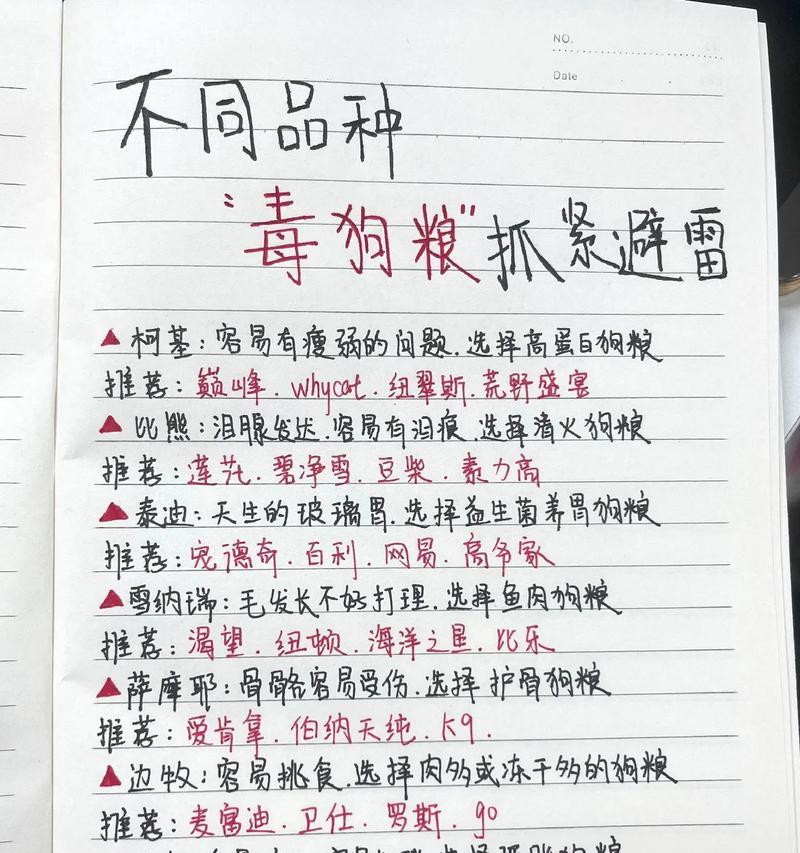 NO.
Date
不同品种
"毒狗粮"抓紧避雷
▲柯基:容易有瘦弱的问题.选择高蛋白狗粮
推荐:巅峰.whycat.纽翠斯.荒野盛宴
▲比熊:泪腺发达.容易有泪痕.选择清火狗粮
推荐:莲花.碧净雪.豆柴.素力高
▲泰迪:天生的玻璃胃.选择益生菌养胃狗粮
推荐:宠德奇.百利.网易.高爷家
▲雪纳瑞:毛发长不好打理.选择鱼肉狗粮
推荐:渴望.纽顿.海洋之星.比乐
▲萨摩耶:骨骼容易受伤.选择护骨狗粮
推荐:爱肯拿.伯纳天纯.K9.
▲边牧:容易挑食.选择肉多或冻干多的狗粮
推荐:麦富迪.卫仕.罗斯.go